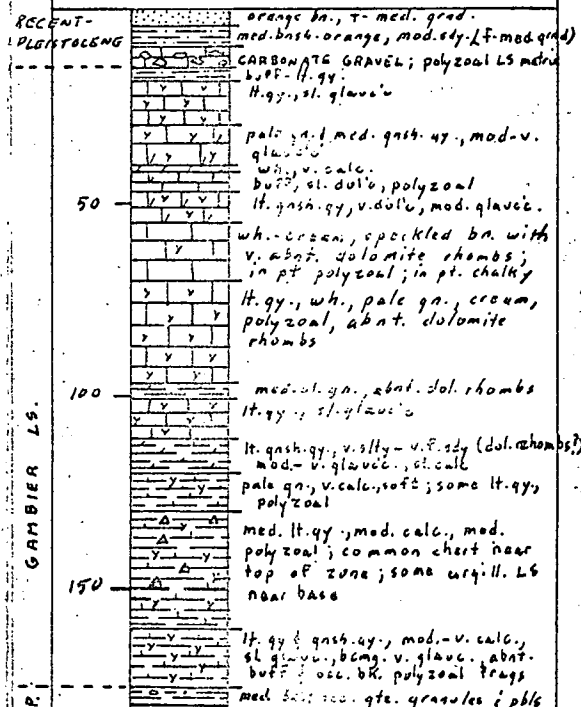 RECENT-
PLEISTOCENE
orange bn., f- med. grd.
med. bnsh-orange, mod. sdy. (f-med grd)
CARBONATE GRAVEL; polyzoal LS matrix
buff-lt. gy.
lt. gy., sl. glauc'c
pale gn. & med. gnsh. gy., mod-v.
glauc'c
wh., v. calc.
buff, sl. dol'c, polyzoal
50
lt. gnsh. gy, v. dol'c, mod. glauc'c.
wh.-cream, speckled bn. with
v. abnt. dolomite rhombs;
in pt polyzoal; in pt. chalky
lt. gy., wh., pale gn., cream,
polyzoal, abnt. dolomite
rhombs
100
med. ol. gn., abnt. dol. rhombs
lt. gy., sl. glauc'c
GAMBIER LS.
lt. gnsh. gy., v. slty - v. f. sdy (dol. rhombs?)
mod.- v. glauc'c., sl. calc
pale gn., v. calc., soft; some lt. gy.,
polyzoal
med. lt. gy., mod. calc., mod.
polyzoal; common chert near
top of zone; some argill. LS
near base
150
lt. gy & gnsh. gy., mod.-v. calc.,
sl glauc., bcmg. v. glauc., abnt.
buff & occ. bk. polyzoal frags
P.
med. occ. qtz. granules & pbls